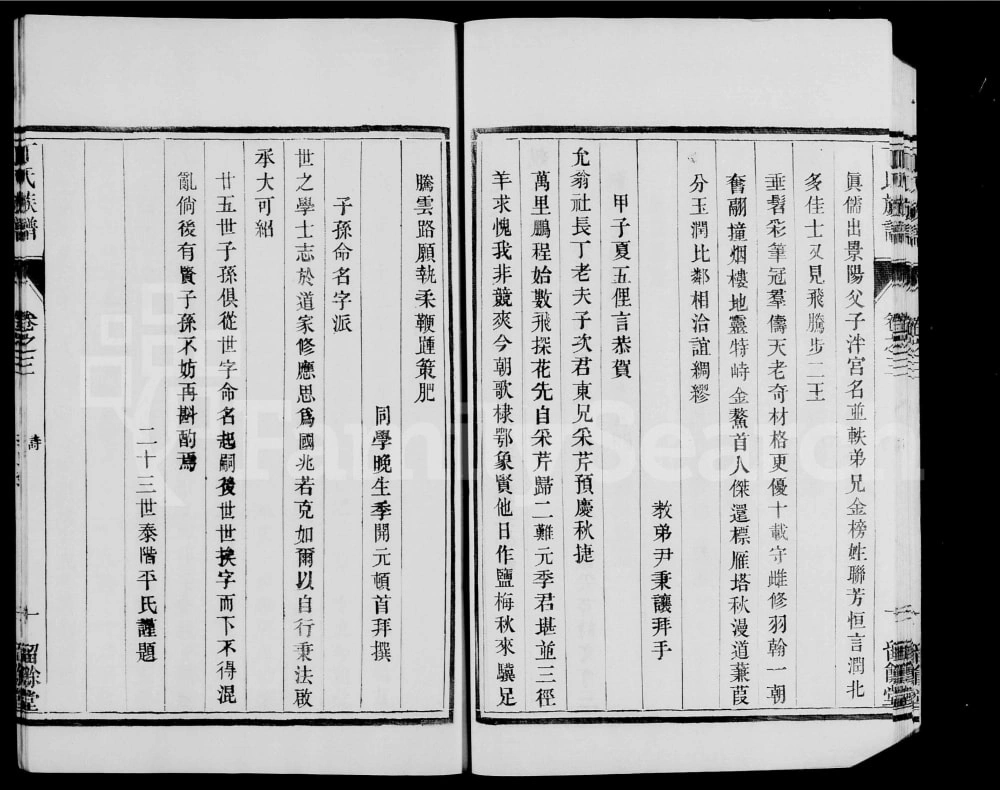 眞儒出景陽父子泮宮名並軼弟兄金榜姓聯芳恒言潤北
多佳士又見飛騰步二王
垂髫彩筆冠羣儔天老奇材格更優十載守雌修羽翰一朝
奮翮撞烟樓地靈特峙金鰲首人傑還標雁塔秋漫道蒹葭
分玉潤比鄰相洽誼綢繆
教弟尹秉讓拜手
甲子夏五俚言恭賀
允翁社長丁老夫子次君東兄采芹預慶秋捷
萬里鵬程始數飛探花先自采芹歸二難元季君堪並三徑
羊求愧我非競爽今朝歌棣鄂象賢他日作鹽梅秋來驥足
騰雲路願執柔鞭踵策肥
同學晚生季開元頓首拜撰
子孫命名字派
世之學士志於道家修應思爲國兆若克如爾以自行秉法啟
承大可紹
廿五世子孫俱從世字命名起嗣後世世挨字而下不得混
亂倘後有賢子孫不妨再斟酌焉
二十三世泰階平氏謹題
氏族譜
卷之三
詩
留餘堂
FamilySearch